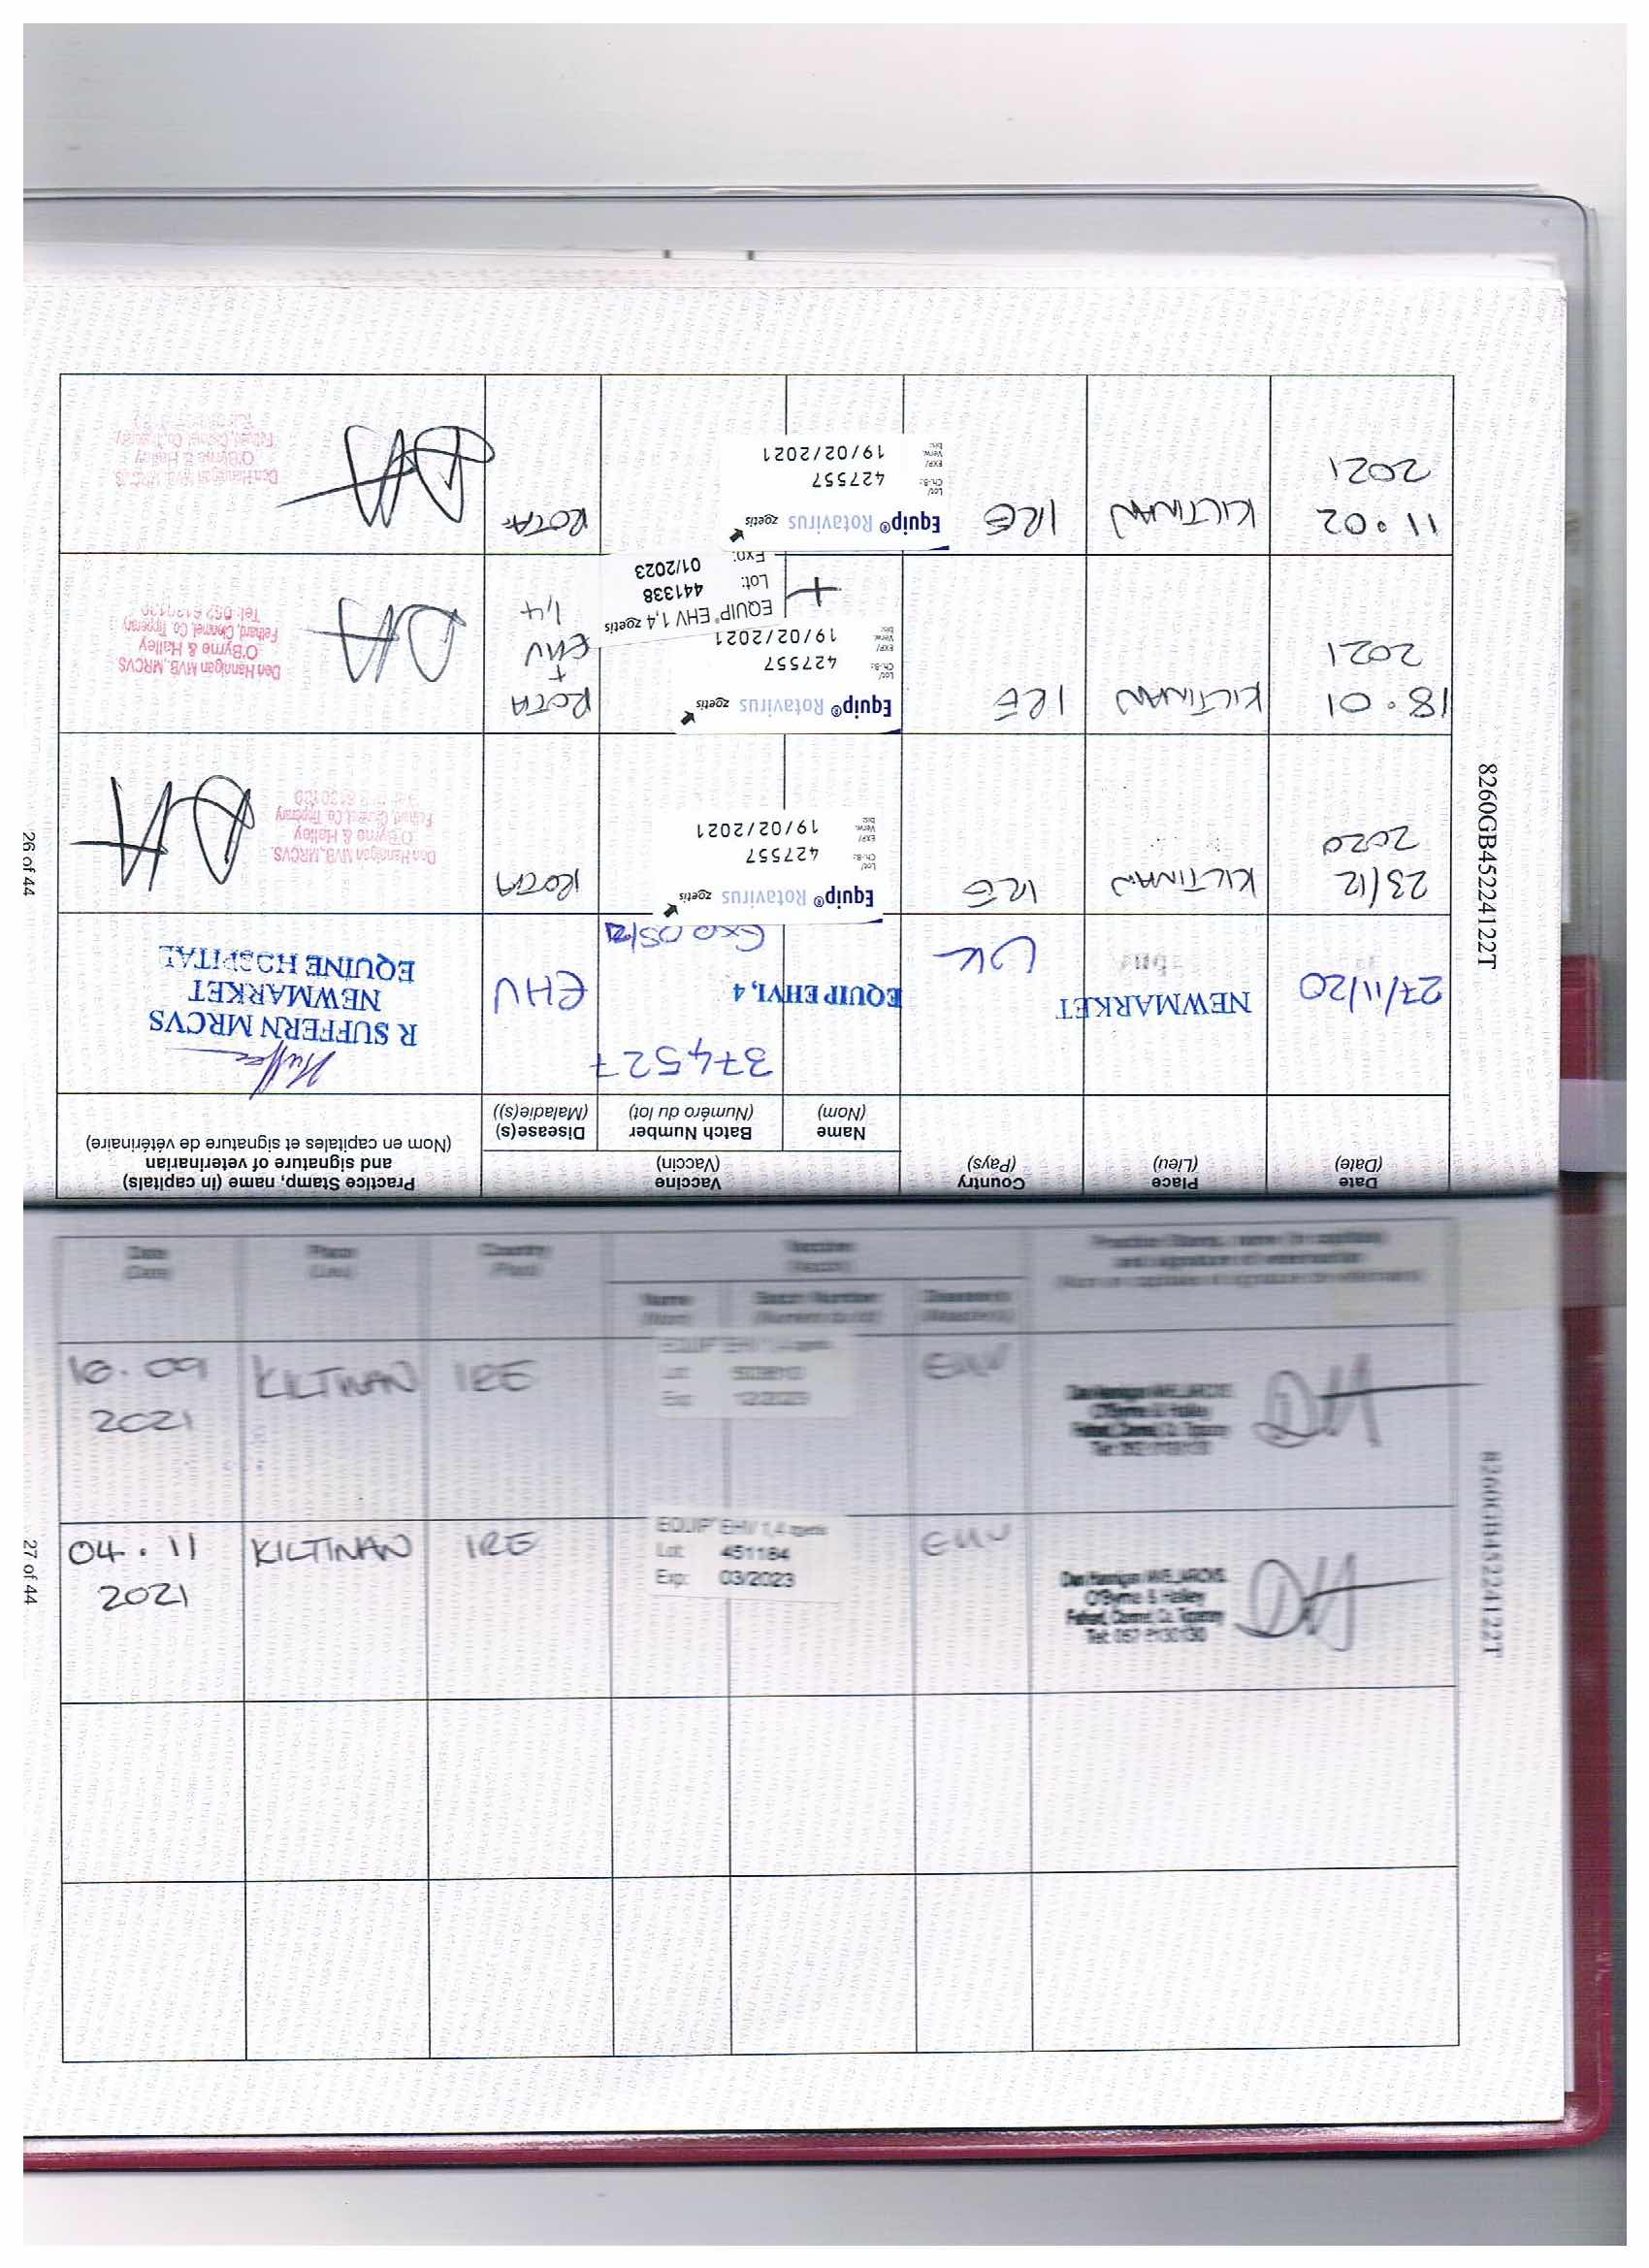 8260GB45224122T
Date
(Date)
Place
(Lieu)
Country
(Pays)
Vaccine
(Vaccin)
Name
(Nom)
Batch Number
(Numéro du lot)
Disease(s)
(Maladie(s))
Practice Stamp, name (in capitals)
and signature of veterinarian
(Nom en capitales et signature de vétérinaire)
27/11/20
NEWMARKET
UK
374527
EQUIP EHV1, 4
Exp 05/21
EHV
R SUFFERN MRCVS
NEWMARKET
EQUINE HOSPITAL
23/12
2020
KILTINAN
IRE
Equip® Rotavirus zoetis
Lot/
Ch.-B.:
427557
EXP/
Verw.
bis:
19/02/2021
ROTA
Dan Hannigan MVB, MRCVS.
O'Byrne & Halley
Fethard, Clonmel, Co. Tipperary
18.01
2021
KILTINAN
IRE
Equip® Rotavirus zoetis
Lot/
Ch.-B.:
427557
EXP/
Verw.
bis:
19/02/2021
+
EQUIP® EHV 1,4 zoetis
Lot: 441338
Exp: 01/2023
ROTA
+
EHV
1,4
Dan Hannigan MVB, MRCVS
O'Byrne & Halley
Fethard, Clonmel, Co. Tipperary
Tel: 052 6130130
11.02
2021
KILTINAN
IRE
Equip® Rotavirus zoetis
Lot/
Ch.-B.:
427557
EXP/
Verw.
bis:
19/02/2021
ROTA
Dan Hannigan MVB, MRCVS
O'Byrne & Halley
Fethard, Clonmel, Co. Tipperary
26 of 44
Date
(Date)
Place
(Lieu)
Country
(Pays)
Vaccine
(Vaccin)
Name
(Nom)
Batch Number
(Numéro du lot)
Disease(s)
(Maladie(s))
Practice Stamp, name (in capitals)
and signature of veterinarian
(Nom en capitales et signature de vétérinaire)
16.09
2021
KILTINAN
IRE
EQUIP® EHV 1,4 zoetis
Lot:
Exp: 12/2023
EHV
Dan Hannigan MVB, MRCVS.
O'Byrne & Halley
Fethard, Clonmel, Co. Tipperary
Tel: 052 6130130
04.11
2021
KILTINAN
IRE
EQUIP® EHV 1,4 zoetis
Lot: 451184
Exp: 03/2023
EHV
Dan Hannigan MVB, MRCVS.
O'Byrne & Halley
Fethard, Clonmel, Co. Tipperary
Tel: 052 6130130
8260GB45224122T
27 of 44